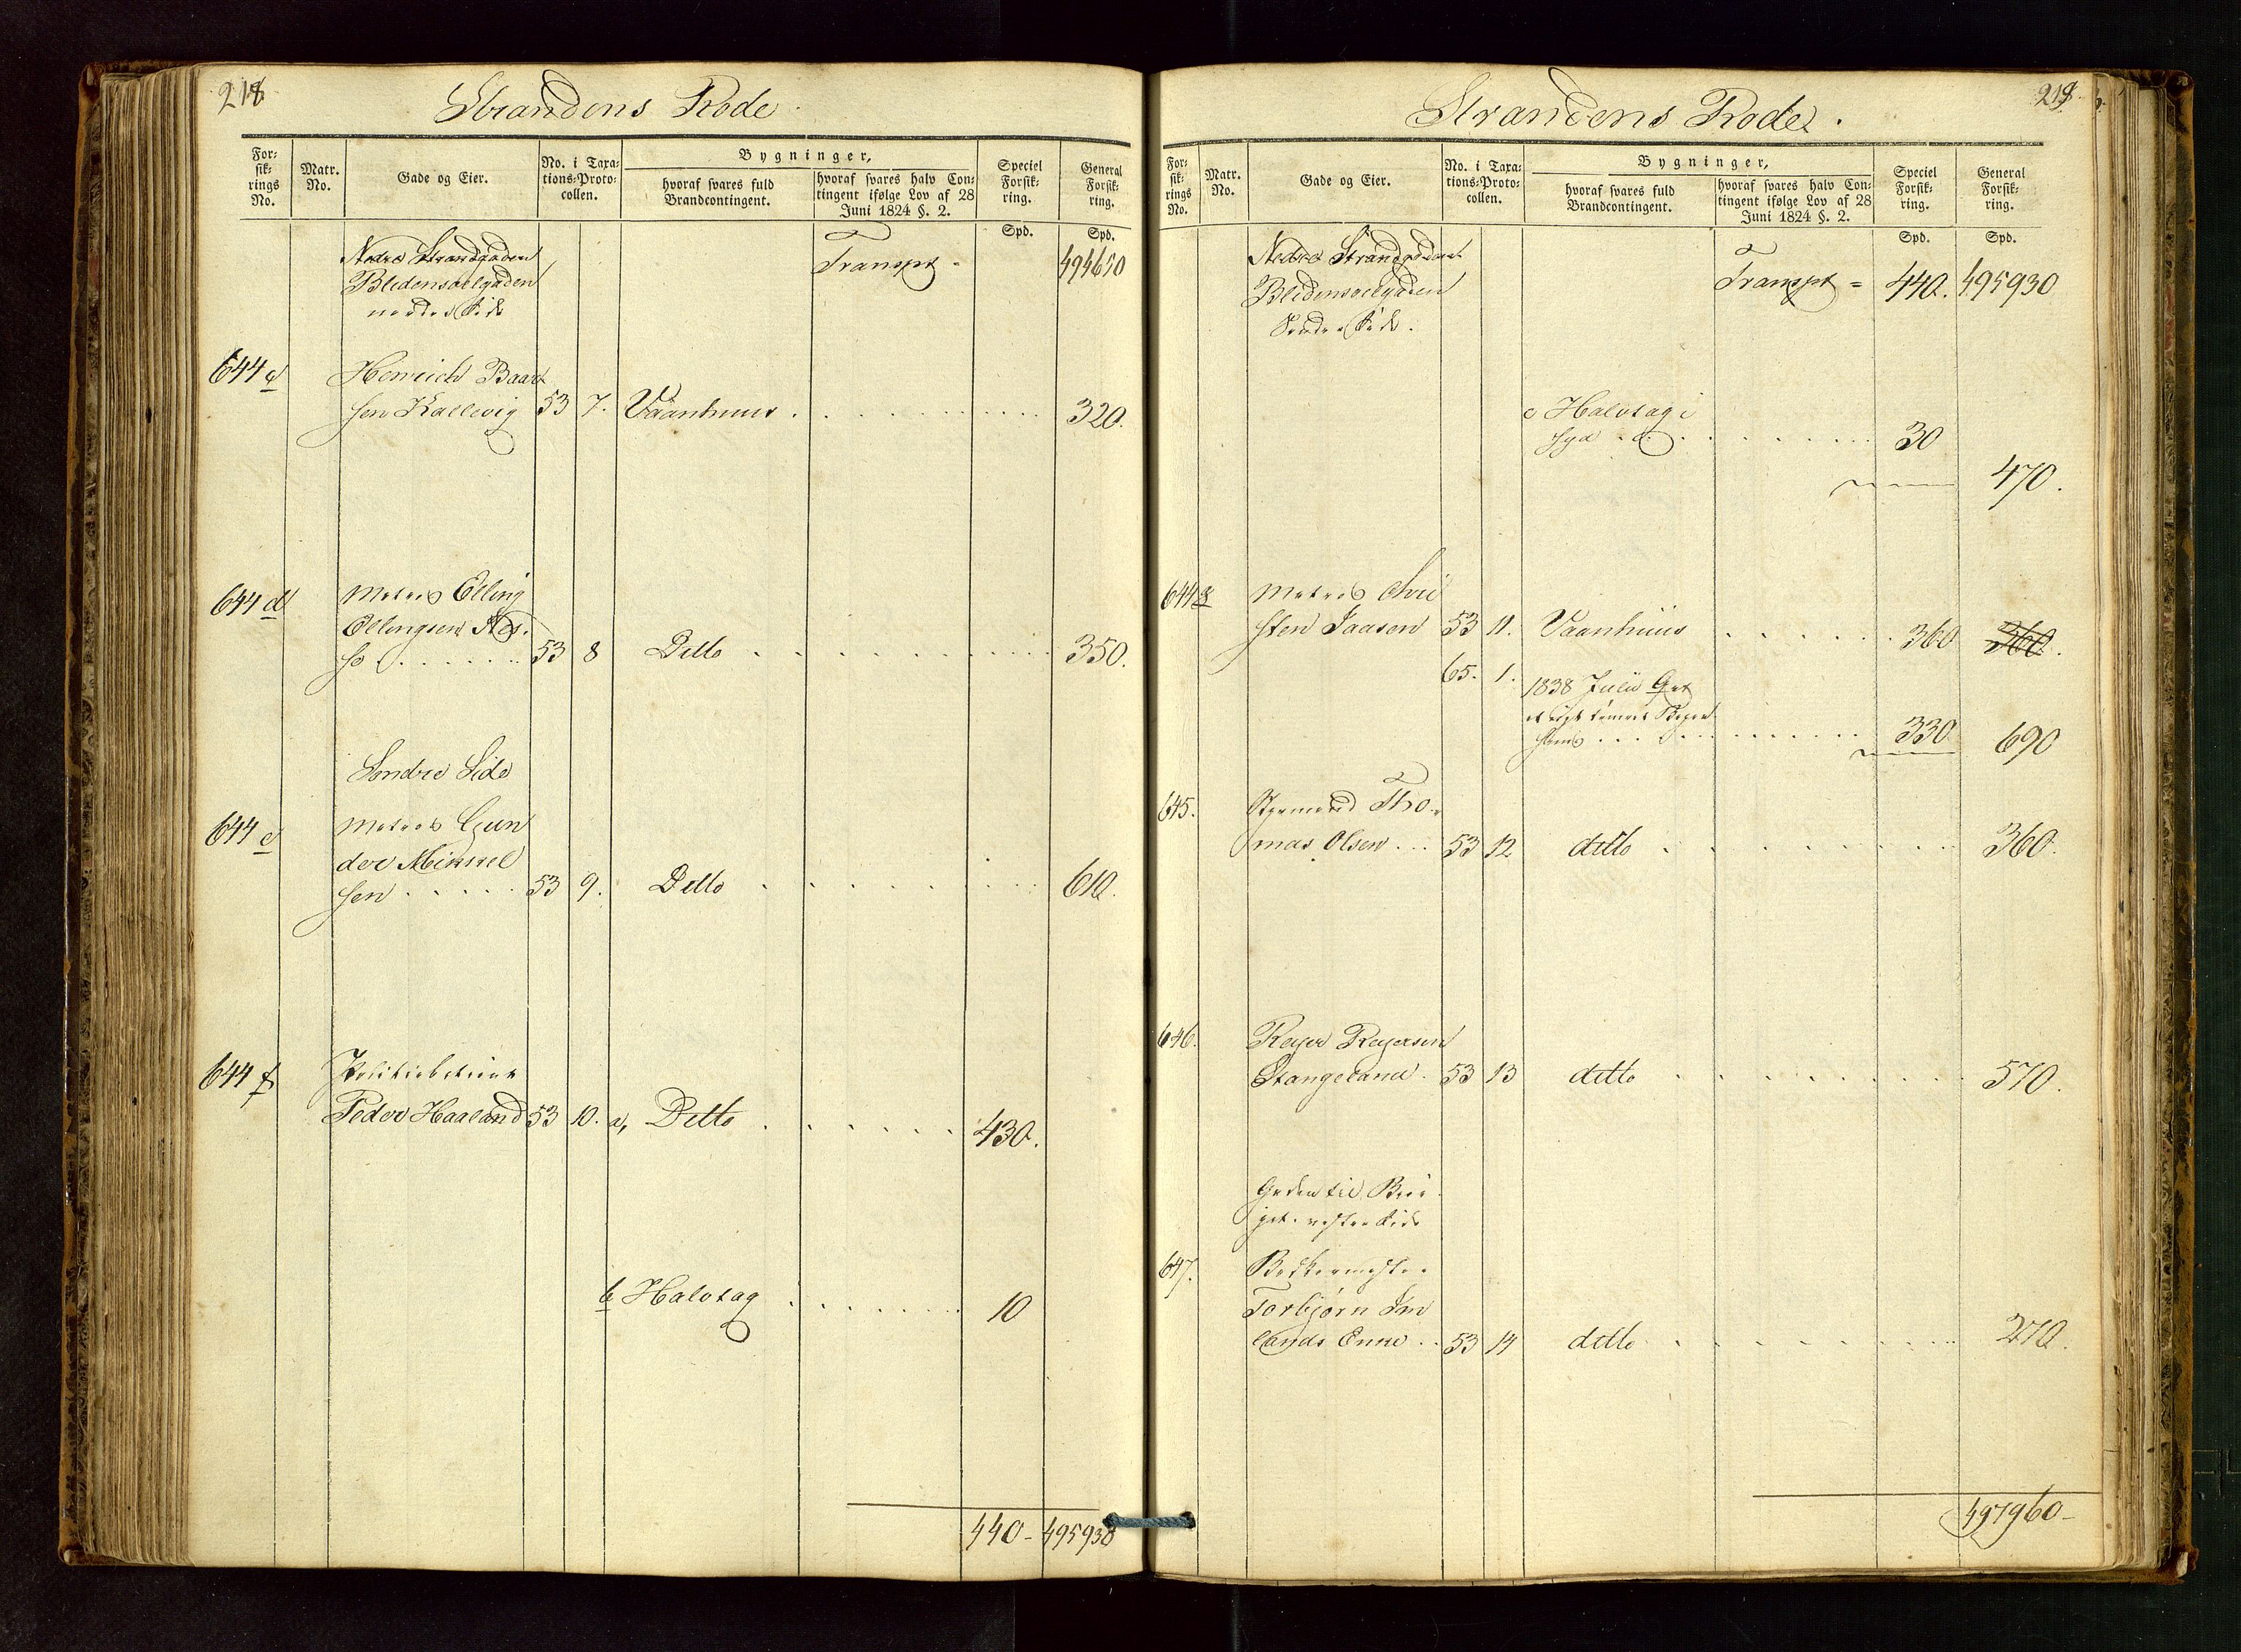 218
Strandens Rode
For: sik: rings No.
Matr. No.
Gade og Eier.
No. i Taxa: tions-Proto: collen.
Bygninger,
hvoraf svares fuld Brandcontingent.
hvoraf svares halv Con: tingent ifølge Lov af 28 Juni 1824 §. 2.
Speciel Forsik: ring.
General Forsik: ring.
Spd. Spd.
Nedre Strandgaden Transpt 494650
Bledensoelgaden
nordre Side
644 c Henrich Baard
sen Kallevig 53 7. Vaanhuus 320.
644 d Matros Elling
Ellingsen
53 8 Ditto 350.
Søndre Side
644 e Matros Gun
der Mikkel
sen 53 9. Ditto 610.
644 f Politiebetient
Peder Haaland 53 10. a, Ditto 430.
b Halvtag 10
440 - 495930
219
Strandens Rode.
For: sik: rings No.
Matr. No.
Gade og Eier.
No. i Taxa: tions-Proto: collen.
Bygninger,
hvoraf svares fuld Brandcontingent.
hvoraf svares halv Con: tingent ifølge Lov af 28 Juni 1824 §. 2.
Speciel Forsik: ring.
General Forsik: ring.
Spd. Spd.
Nedre Strandgaden
Bledensoelgaden Transpt = 440. 495930
Søndre Side.
c Halvtag i
Syd 30
470.
644 g Matros Chri
sten Jaasen 53 11. Vaanhuus 360 360.
65. 1. 1838 Julii
330 690
645. Styrmand Tho
mas Olsen 53 12 ditto 360.
646. Reyer Reyersen
Stangeland 53 13 ditto 570.
Gaden til Bier
get. vestre Side
647. Bødkermester
Torbjørn Im
lands Enke 53 14 ditto 270.
497960